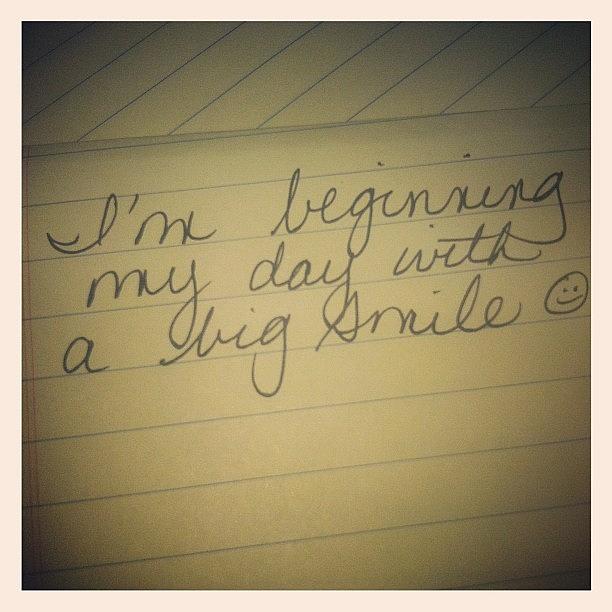 I'm beginning
my day with
a big smile ☺